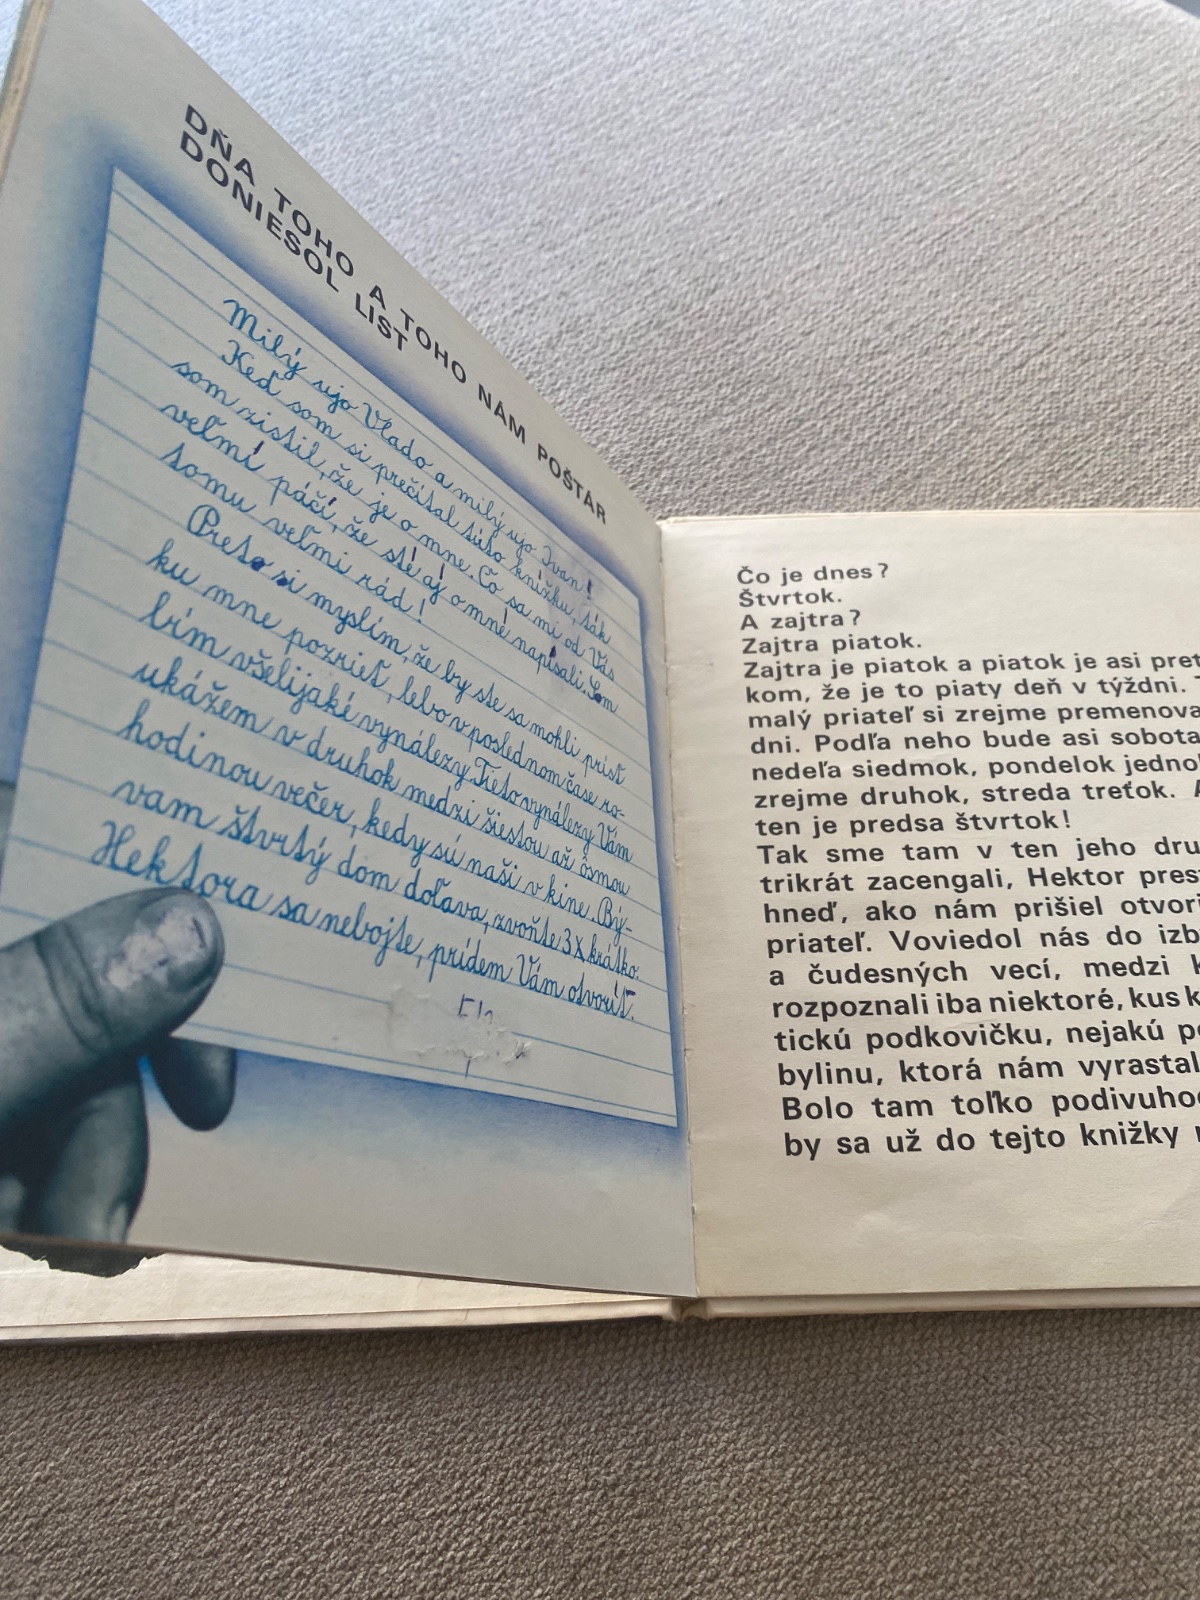 DŇA TOHO A TOHO NÁM POŠTÁR
DONIESOL LIST
Milý ujo Vlado a milý ujo Ivan!
Keď som si prečítal túto knižku, ták
som zistil, že je o mne. Čo sa mi od Vás
veľmi páčí, že sté aj o mne napísali. Som
tomu veľmi rád!
Preto si myslím, že by ste sa mohli prísť
ku mne pozrieť, lebo v poslednom čase ro-
bím všelijaké vynálezy. Tieto vynálezy Vám
ukážem v druhok medzi šiestou až ôsmou
hodinou večer, kedy sú naši v kine. Bý-
vam štvrtý dom doľava, zvoňte 3x krátko.
Hektora sa nebojte, prídem Vám otvoriť.
Čo je dnes?
Štvrtok.
A zajtra?
Zajtra piatok.
Zajtra je piatok a piatok je asi pret
kom, že je to piaty deň v týždni. T
malý priateľ si zrejme premenova
dni. Podľa neho bude asi sobota
nedeľa siedmok, pondelok jedno
zrejme druhok, streda treťok. A
ten je predsa štvrtok!
Tak sme tam v ten jeho dru
trikrát zacengali, Hektor pres
hneď, ako nám prišiel otvori
priateľ. Voviedol nás do izb
a čudesných vecí, medzi k
rozpoznali iba niektoré, kus k
tickú podkovičku, nejakú p
bylinu, ktorá nám vyrastal
Bolo tam toľko podivuho
by sa už do tejto knižky